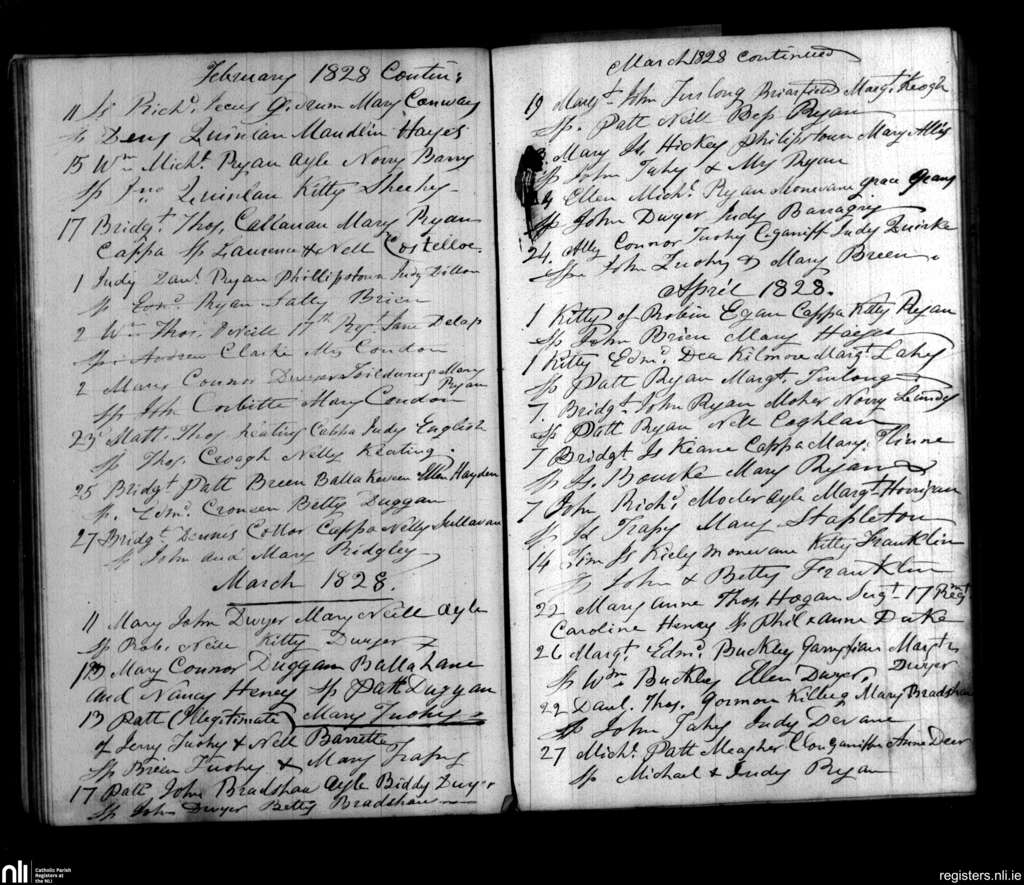 February 1828 Contin:
11 Js Richd. Mary Conway
Sp Deny Quinlan Maudlin Hayes
15 Wm Michl. Ryan Ayle Norry Barry
Sp Jno. Quinlan Kitty Sheehy
17 Bridgt. Thos. Callanan Mary Ryan
Cappa Sp Laurence & Nell Costelloe
1 Judy Danl. Ryan Phillipstown Judy Dillon
Sp Edmd. Ryan Sally Brien
2 Wm Thos. ONeill 17th Rgt. Jane Delap
Sp. Andrew Clarke Mrs Condon
2 Mary Connor Dwyer Mary Ryan
Sp John Corbitte Mary Condon
23 Matt. Thos. Keating Cappa Judy English
Sp Thos. Nelly Keating.
25 Bridgt Patt Breen Ellen Hayden
Sp. Edmd. Croneen Betty Duggan
27 Bridgt. Dennis Cappa Nelly Sullavan
Sp John and Mary Ridgley
March 1828.
11 Mary John Dwyer Mary Neill Ayle
Sp Robt. Neill Kitty Dwyer
13 Mary Connor Duggan Ballahane
and Nancy Heney Sp Patt Duggan
13 Patt (Illegitimate) Mary Tuohy
of Jerry Tuohy & Nell Barrette
Sp Breen Tuohy & Mary Trapny
17 Patt John Bradshaw Ayle Biddy Dwyer
Sp John Dwyer Betty Bradshaw
March 1828 continued
19 Margt. John Furlong Briarsfield Margt. Keogh
Sp. Patt Neill Bess Ryan
Mary Js. Hickey Philipstown Mary Allis
Sp John Fahy & Mrs Ryan
Ellen Michl. Ryan Monevane Grace Grang
Sp John Dwyer Judy Barragry
24. Ally Connor Tuohy Judy Quirke
Sp John Tuohy & Mary Breen.
April 1828.
1 Kitty of Robin Egan Cappa Kitty Ryan
Sp John Brien Mary Hayes
1 Kitty Edmd. Dea Kilmore Margt. Lahy
Sp Patt Ryan Margt. Furlong
7. Bridgt. John Ryan Moher Norry
Sp Patt Ryan Nell Coghlan
7 Bridgt Js Keane Cappa Mary Flinne
Sp Js. Bourke Mary Ryan
7 John Richd. Mocler Ayle Margt. Horrigan
Sp Js Trapy Mary Stapleton
14 Tim Js Kiely Monevane Kitty Franklin
Sp John & Betty Franklin
22 Mary Anne Thos. Hogan Sergt. 17 Regmt
Caroline Henry Sp Phil & Anne Duke
26 Margt. Edmd. Buckley Margt.
Sp Wm Buckley Ellen Dwyer, Dwyer
22 Danl. Thos. Gorman Mary Bradshaw
Sp John Fahy Judy Devane
27 Michl. Patt Meagher Clonganiffe Anne Deer
Sp Michael & Judy Ryan
nli
Catholic Parish
Registers at
the NLI
registers.nli.ie